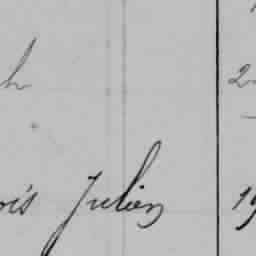 h 2
ois Julien 19